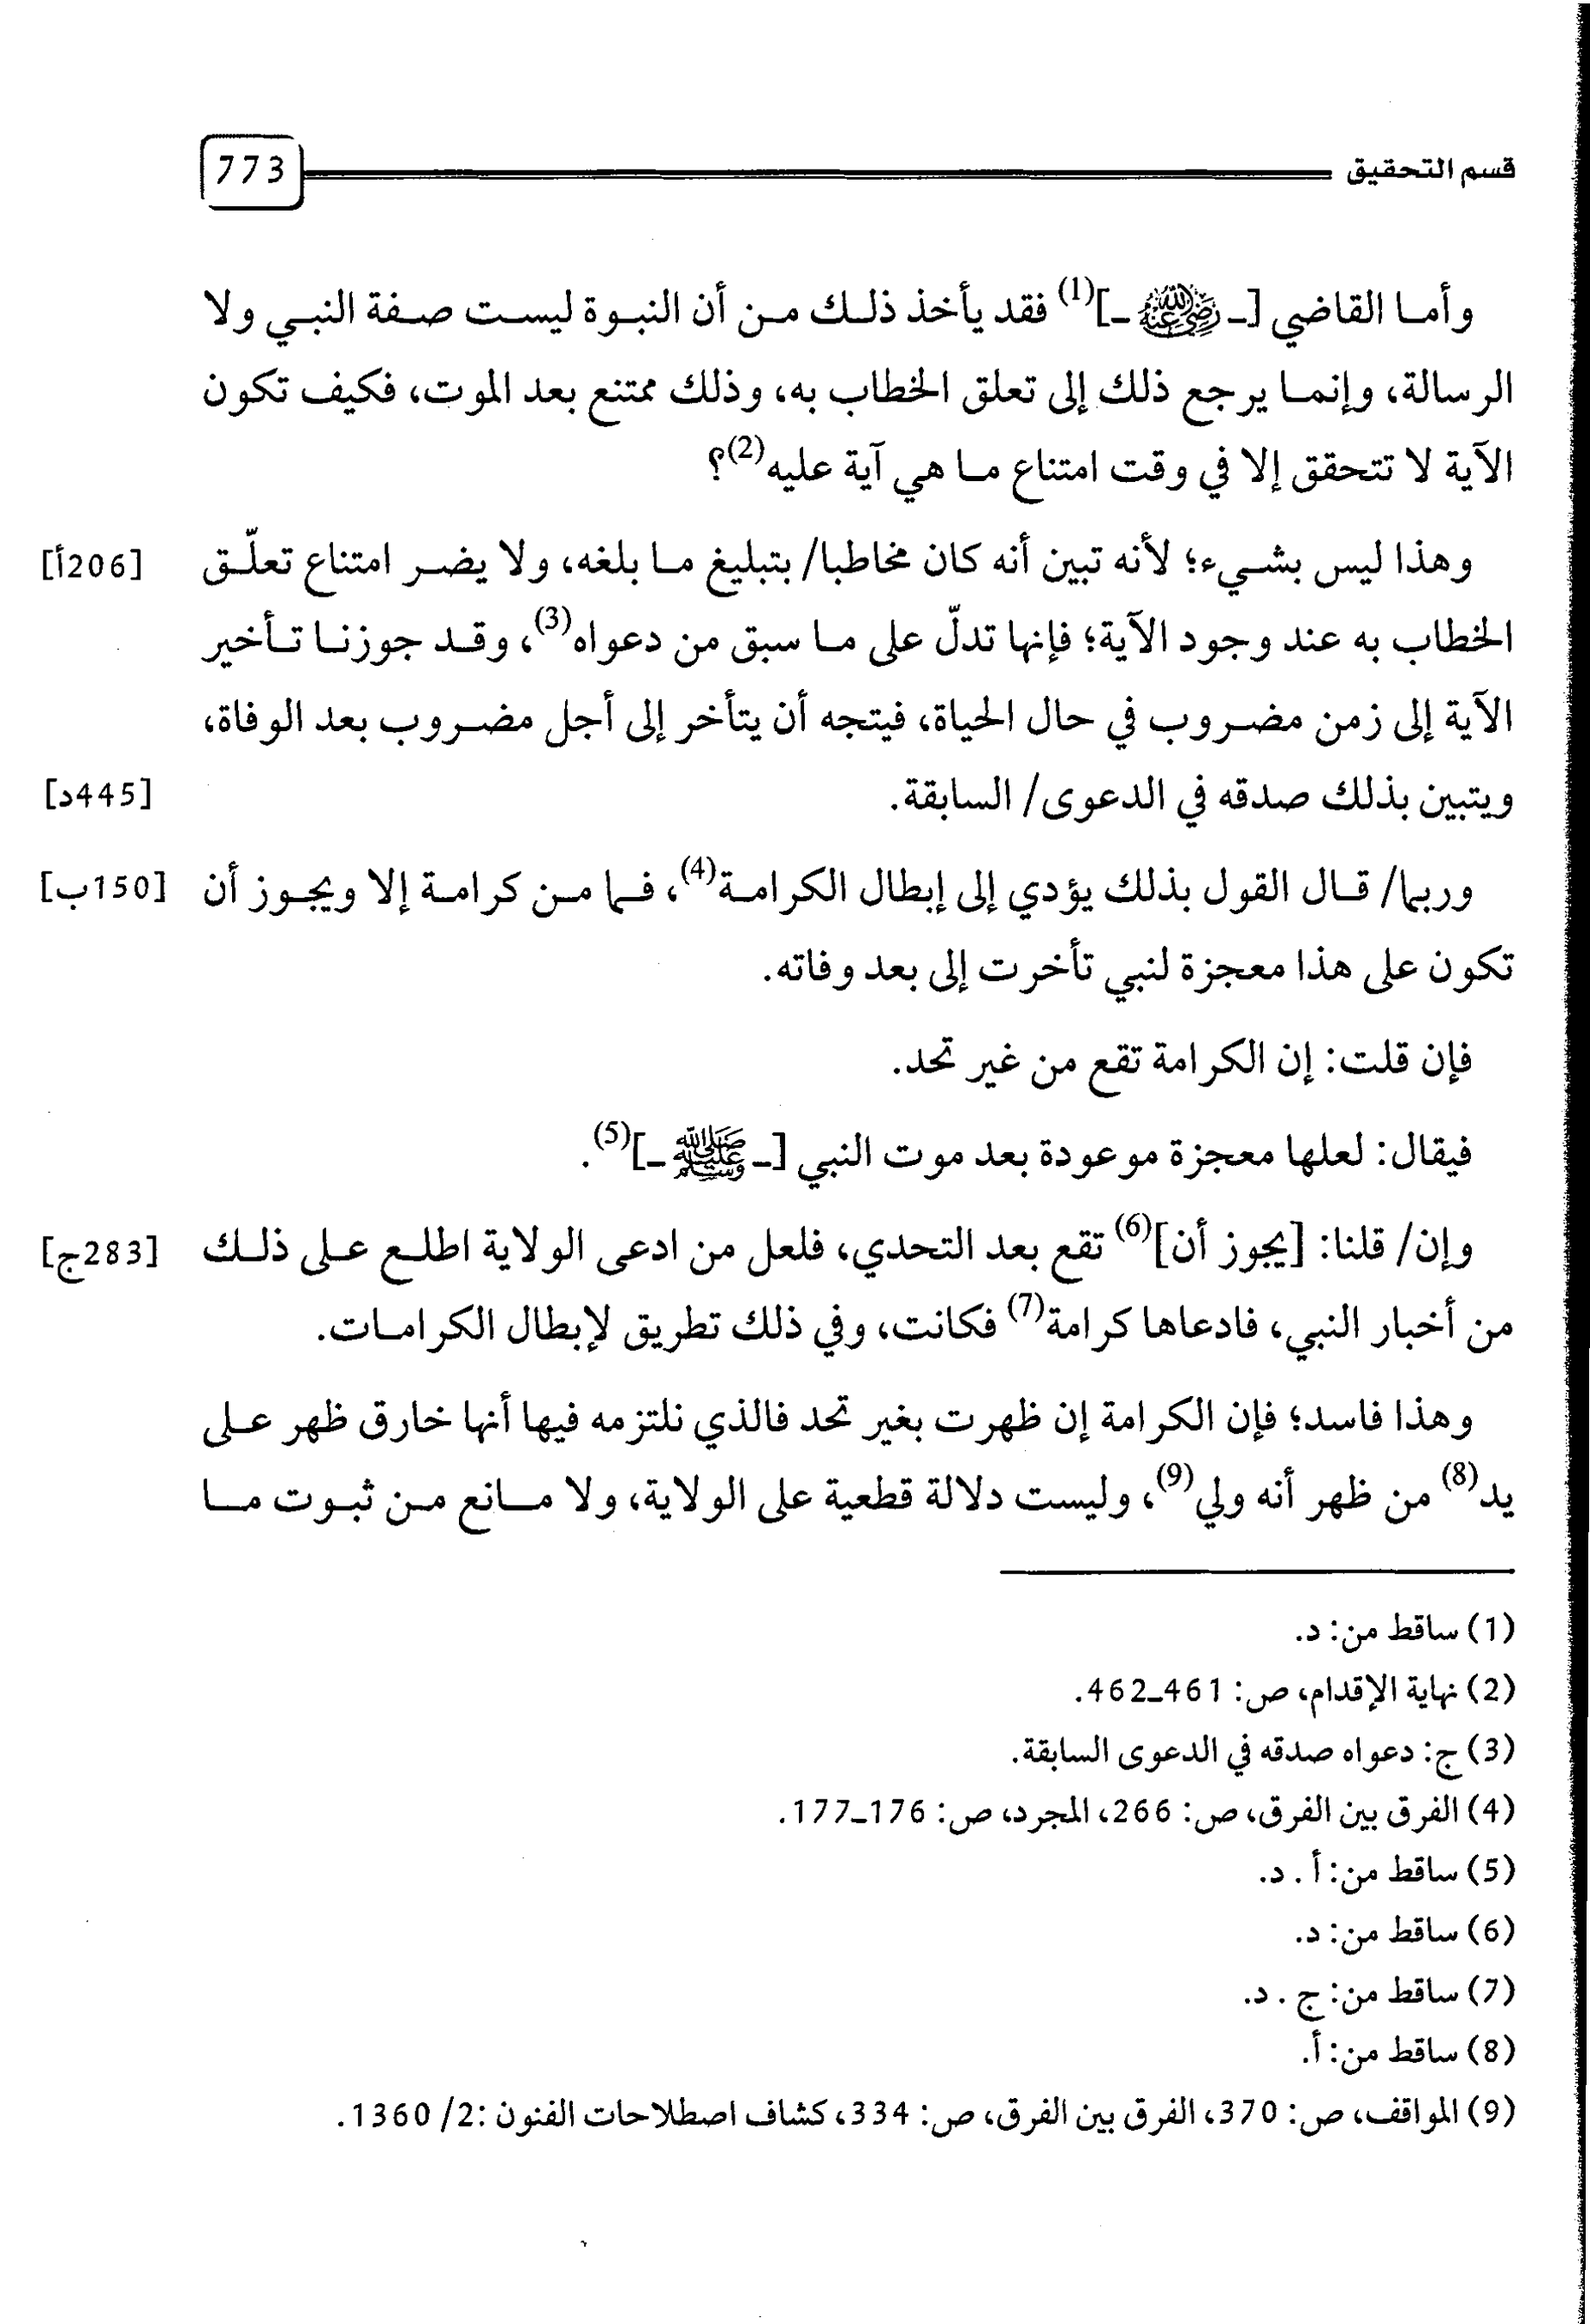 قسم التحقيق 773
وأما القاضي [ـ رضي الله عنه ـ](1) فقد يأخذ ذلك من أن النبوة ليست صفة النبي ولا
الرسالة، وإنما يرجع ذلك إلى تعلق الخطاب به، وذلك ممتنع بعد الموت، فكيف تكون
الآية لا تتحقق إلا في وقت امتناع ما هي آية عليه(2)؟
وهذا ليس بشيء؛ لأنه تبين أنه كان مخاطبا/ بتبليغ ما بلغه، ولا يضر امتناع تعلّق [206أ]
الخطاب به عند وجود الآية؛ فإنها تدلّ على ما سبق من دعواه(3)، وقد جوزنا تأخير
الآية إلى زمن مضروب في حال الحياة، فيتجه أن يتأخر إلى أجل مضروب بعد الوفاة،
ويتبين بذلك صدقه في الدعوى/ السابقة. [445د]
وربما/ قال القول بذلك يؤدي إلى إبطال الكرامة(4)، فما من كرامة إلا ويجوز أن [150ب]
تكون على هذا معجزة لنبي تأخرت إلى بعد وفاته.
فإن قلت: إن الكرامة تقع من غير تحد.
فيقال: لعلها معجزة موعودة بعد موت النبي [ـ صلى الله عليه وسلم ـ](5).
وإن/ قلنا: [يجوز أن](6) تقع بعد التحدي، فلعل من ادعى الولاية اطلع على ذلك [283ج]
من أخبار النبي، فادعاها كرامة(7) فكانت، وفي ذلك تطريق لإبطال الكرامات.
وهذا فاسد؛ فإن الكرامة إن ظهرت بغير تحد فالذي نلتزمه فيها أنها خارق ظهر على
يد(8) من ظهر أنه ولي(9)، وليست دلالة قطعية على الولاية، ولا مانع من ثبوت ما
(1) ساقط من: د.
(2) نهاية الإقدام، ص: 461ـ462.
(3) ج: دعواه صدقه في الدعوى السابقة.
(4) الفرق بين الفرق، ص: 266، المجرد، ص: 176ـ177.
(5) ساقط من: أ . د.
(6) ساقط من: د.
(7) ساقط من: ج . د.
(8) ساقط من: أ.
(9) المواقف، ص: 370، الفرق بين الفرق، ص: 334، كشاف اصطلاحات الفنون :2/ 1360.